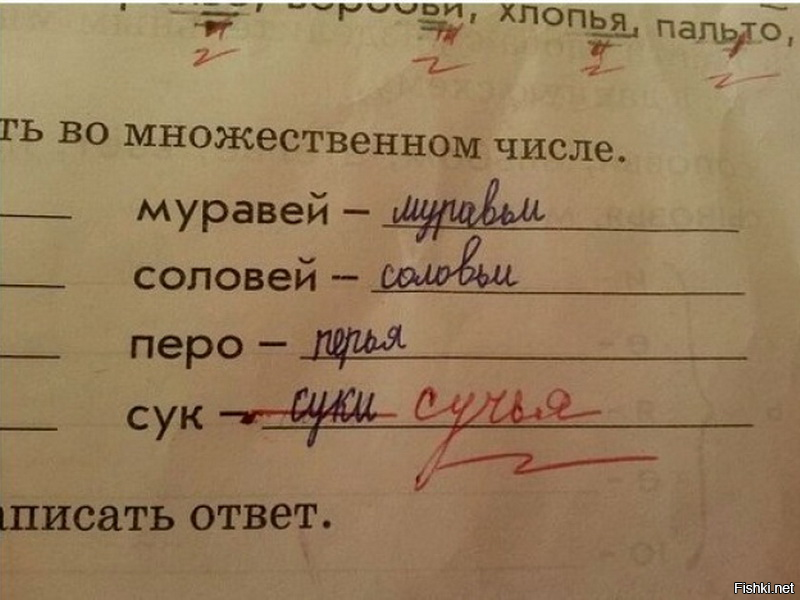 воробьи, хлопья, пальто,
ть во множественном числе.
муравей – муравьи
соловей – соловьи
перо – перья
сук – суки сучья
аписать ответ.
Fishki.net